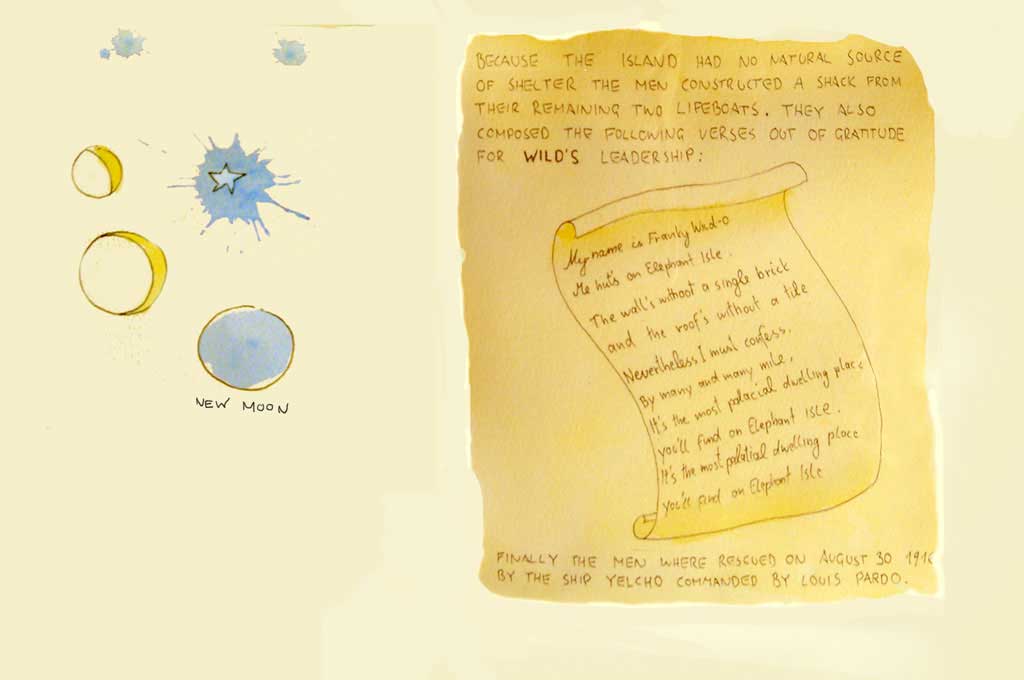 NEW MOON
BECAUSE THE ISLAND HAD NO NATURAL SOURCE
OF SHELTER THE MEN CONSTRUCTED A SHACK FROM
THEIR REMAINING TWO LIFEBOATS. THEY ALSO
COMPOSED THE FOLLOWING VERSES OUT OF GRATITUDE
FOR WILD'S LEADERSHIP:
My name is Franky Wild-o
Me hut's on Elephant Isle.
The wall's without a single brick
and the roof's without a tile
Nevertheless I must confess,
By many and many mile,
It's the most palacial dwelling place
you'll find on Elephant Isle.
It's the most palatial dwelling place
you'll find on Elephant Isle
FINALLY THE MEN WHERE RESCUED ON AUGUST 30 1916
BY THE SHIP YELCHO COMMANDED BY LOUIS PARDO.